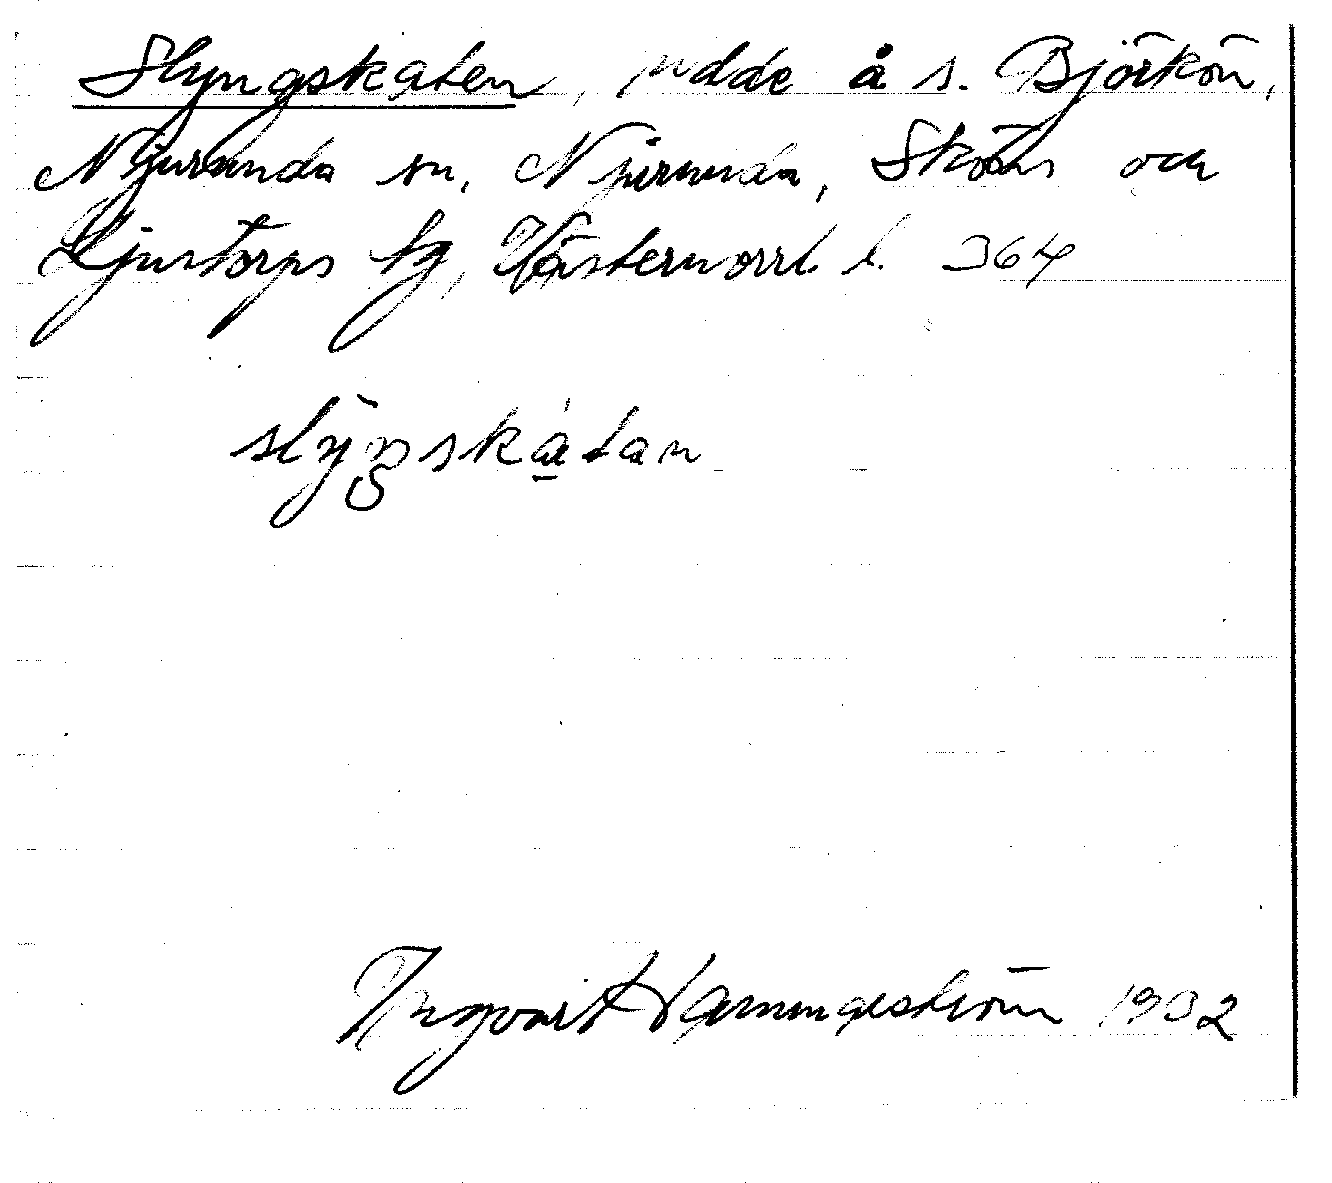 Slyngskaten, udde å s. Björkön,
Njurunda sn, Njurunda, Sköns och
Ljustorps tg, Västernorrl. l. 364
slyŋskatan
Ingvart Hammarström 1932